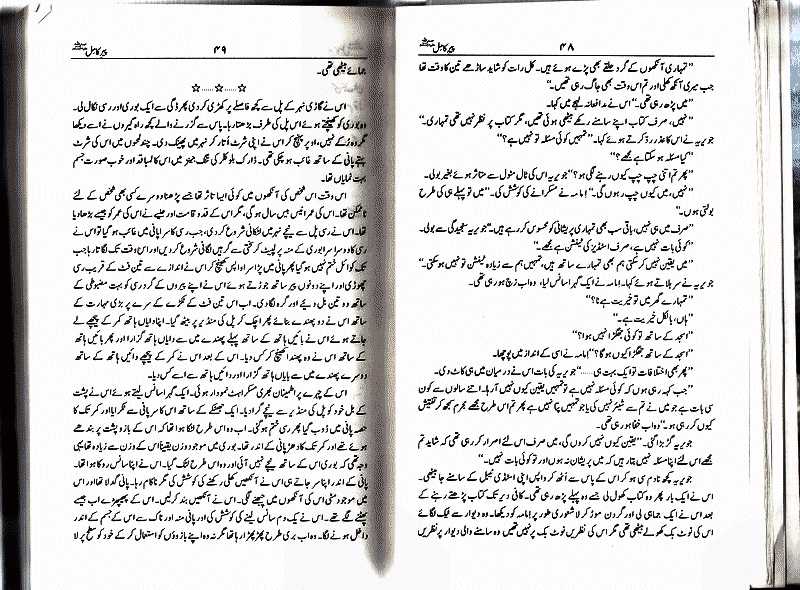 پیر کامل ۴۸
"تمہاری آنکھوں کے گرد حلقے بھی پڑے ہوئے ہیں۔ کل رات کو شاید ساڑھے تین کا وقت تھا
جب میری آنکھ کھلی اور تم اس وقت بھی جاگ رہی تھیں۔"
"میں پڑھ رہی تھی۔" اس نے مدافعانہ لہجے میں کہا۔
"نہیں، صرف کتاب اپنے سامنے رکھے بیٹھی ہوئی تھیں، مگر کتاب پر نظر نہیں تھی تمہاری۔"
جویریہ نے اس کا عذر رد کرتے ہوئے کہا۔ "تمہیں کوئی مسئلہ تو نہیں ہے؟"
"کیا مسئلہ ہو سکتا ہے مجھے؟"
"پھر تم اتنی چپ چپ کیوں رہنے لگی ہو؟" جویریہ اس کی ٹال مٹول سے متاثر ہوئے بغیر بولی۔
"نہیں، میں کیوں چپ رہوں گی۔" امامہ نے مسکرانے کی کوشش کی۔ "میں تو پہلے ہی کی طرح
بولتی ہوں۔"
"صرف میں ہی نہیں، باقی سب بھی تمہاری پریشانی کو محسوس کر رہے ہیں۔" جویریہ سنجیدگی سے بولی۔
"کوئی بات نہیں ہے، صرف اسٹڈیز کی ٹینشن ہے مجھے۔"
"میں یقین نہیں کر سکتی ہم بھی تمہارے ساتھ ہیں، تمہیں ہم سے زیادہ ٹینشن تو نہیں ہو سکتی۔"
جویریہ نے سر ہلاتے ہوئے کہا۔ امامہ نے ایک گہرا سانس لیا، وہ اب زچ ہو رہی تھی۔
"تمہارے گھر میں تو خیریت ہے نا؟"
"ہاں، بالکل خیریت ہے۔"
"اسجد کے ساتھ تو کوئی جھگڑا نہیں ہوا؟"
"اسجد کے ساتھ جھگڑا کیوں ہو گا؟" امامہ نے اسی کے انداز میں پوچھا۔
"پھر بھی اختلافات تو ایک بہت ہی ......" جویریہ کی بات اس نے درمیان میں ہی کاٹ دی۔
"جب کہہ رہی ہوں کہ کوئی مسئلہ نہیں ہے تو تمہیں یقین کیوں نہیں آ رہا۔ اتنے سالوں سے کون
سی بات ہے جو میں نے تم سے شیئر نہیں کی یا جو تمہیں پتا نہیں ہے پھر تم اس طرح مجھے مجرم سمجھ کر تفتیش
کیوں کر رہی ہو۔" وہ اب خفا ہو رہی تھی۔
جویریہ گڑبڑا گئی۔ "یقین کیوں نہیں کروں گی، میں صرف اس لئے اصرار کر رہی تھی کہ شاید تم
مجھے اس لئے اپنا مسئلہ نہیں بتا رہیں کہ میں پریشان نہ ہوں اور تو کوئی بات نہیں۔"
جویریہ کچھ نادم سی ہو کر اس کے پاس سے اٹھ کر واپس اپنی اسٹڈی ٹیبل کے سامنے جا بیٹھی۔
اس نے ایک بار پھر وہ کتاب کھول لی جسے وہ پہلے پڑھ رہی تھی۔ کافی دیر تک کتاب پڑھتے رہنے کے
بعد اس نے ایک جماہی لی اور گردن موڑ کر لاشعوری طور پر امامہ کو دیکھا۔ وہ دیوار سے ٹیک لگائے
اس کی نوٹ بک کھولے بیٹھی تھی مگر اس کی نظریں نوٹ بک پر نہیں تھیں وہ سامنے والی دیوار پر نظریں
پیر کامل ۴۹
جمائے بیٹھی تھی۔
☆......☆......☆
اس نے گاڑی نہر کے پل سے کچھ فاصلے پر کھڑی کر دی پھر ڈگی سے ایک بوری اور رسی نکال لی۔
وہ بوری کو کھینچتے ہوئے اس پل کی طرف بڑھتا رہا۔ پاس سے گزرنے والے کچھ راہ گیروں نے اسے دیکھا
مگر وہ رکے نہیں، اوپر پہنچ کر اس نے اپنی شرٹ اتار کر نہر میں پھینک دی۔ چند لمحوں میں اس کی شرٹ
بہتے پانی کے ساتھ غائب ہو چکی تھی۔ ڈارک بلو کلر کی تنگ جینز میں اس کا لمبا قد اور خوب صورت جسم
بہت نمایاں تھا۔
اس وقت اس شخص کی آنکھوں میں کوئی ایسا تاثر تھا جسے پڑھنا دوسرے کسی بھی شخص کے لئے
ناممکن تھا۔ اس کی عمر انیس بیس سال ہو گی، مگر اس کے قد و قامت اور حلیے نے اس کی عمر کو جیسے بڑھا دیا
تھا۔ اس نے رسی پل سے نیچے نہر میں لٹکانی شروع کر دی، جب رسی کا سرا پانی میں غائب ہو گیا تو اس نے
رسی کا دوسرا سرا بوری کے منہ پر لپیٹ کر سختی سے گرہیں لگانی شروع کر دیں اور اس وقت تک لگاتا رہا جب
تک کوائل ختم نہیں ہو گیا پھر پانی میں پڑا سرا واپس کھینچ کر اس نے اندازے سے تین فٹ کے قریب رسی
چھوڑی اور اپنے دونوں پیر ساتھ جوڑتے ہوئے اس نے اپنے پیروں کے گرد رسی کو بہت مضبوطی کے
ساتھ دو تین بل دیئے اور گرہ لگا دی۔ اب اس تین فٹ کے ٹکڑے کے سرے پر بڑی مہارت کے
ساتھ اس نے دو پھندے بنائے پھر اچک کر پل کی منڈیر پر بیٹھ گیا۔ اپنا دایاں ہاتھ کمر کے پیچھے لے
جاتے ہوئے اس نے بائیں ہاتھ کے ساتھ پہلے پھندے میں سے دایاں ہاتھ گزارا اور پھر بائیں ہاتھ
کے ساتھ اس نے وہ پھندا کھینچ کر کس دیا۔ اس کے بعد اس نے کمر کے پیچھے دائیں ہاتھ کے ساتھ
دوسرے پھندے میں سے بایاں ہاتھ گزارا اور دائیں ہاتھ سے اسے کس دیا۔
اس کے چہرے پر اطمینان بھری مسکراہٹ نمودار ہوئی۔ ایک گہرا سانس لیتے ہوئے اس نے پشت
کے بل خود کو پل کی منڈیر سے نیچے گرا دیا۔ ایک جھٹکے کے ساتھ اس کا سر پانی سے ٹکرایا اور کمر تک کا
حصہ پانی میں ڈوب گیا پھر رسی ختم ہو گئی۔ اب وہ اس طرح لٹکا ہوا تھا کہ اس کے بازو پشت پر بندھے
ہوئے تھے اور کمر تک کا دھڑ پانی کے اندر تھا۔ بوری میں موجود وزن یقیناً اس کے وزن سے زیادہ تھا یہی
وجہ تھی کہ بوری اس کے ساتھ نیچے نہیں آئی اور وہ اس طرح لٹک گیا۔ اس نے اپنا سانس روکا ہوا تھا۔
پانی کے اندر اپنا سر جاتے ہی اس نے آنکھیں کھلی رکھنے کی کوشش کی مگر ناکام رہا۔ پانی گدلا تھا اور اس
میں موجود مٹی اس کی آنکھوں میں چبھنے لگی۔ اس نے آنکھیں بند کر لیں۔ اس کے پھیپھڑے اب جیسے
پھٹنے لگے تھے۔ اس نے یک دم سانس لینے کی کوشش کی اور پانی منہ اور ناک سے اس کے جسم کے اندر
داخل ہونے لگا۔ وہ اب بری طرح پھڑپھڑا رہا تھا مگر نہ وہ اپنے بازوؤں کو استعمال کر کے خود کو سطح پر لا